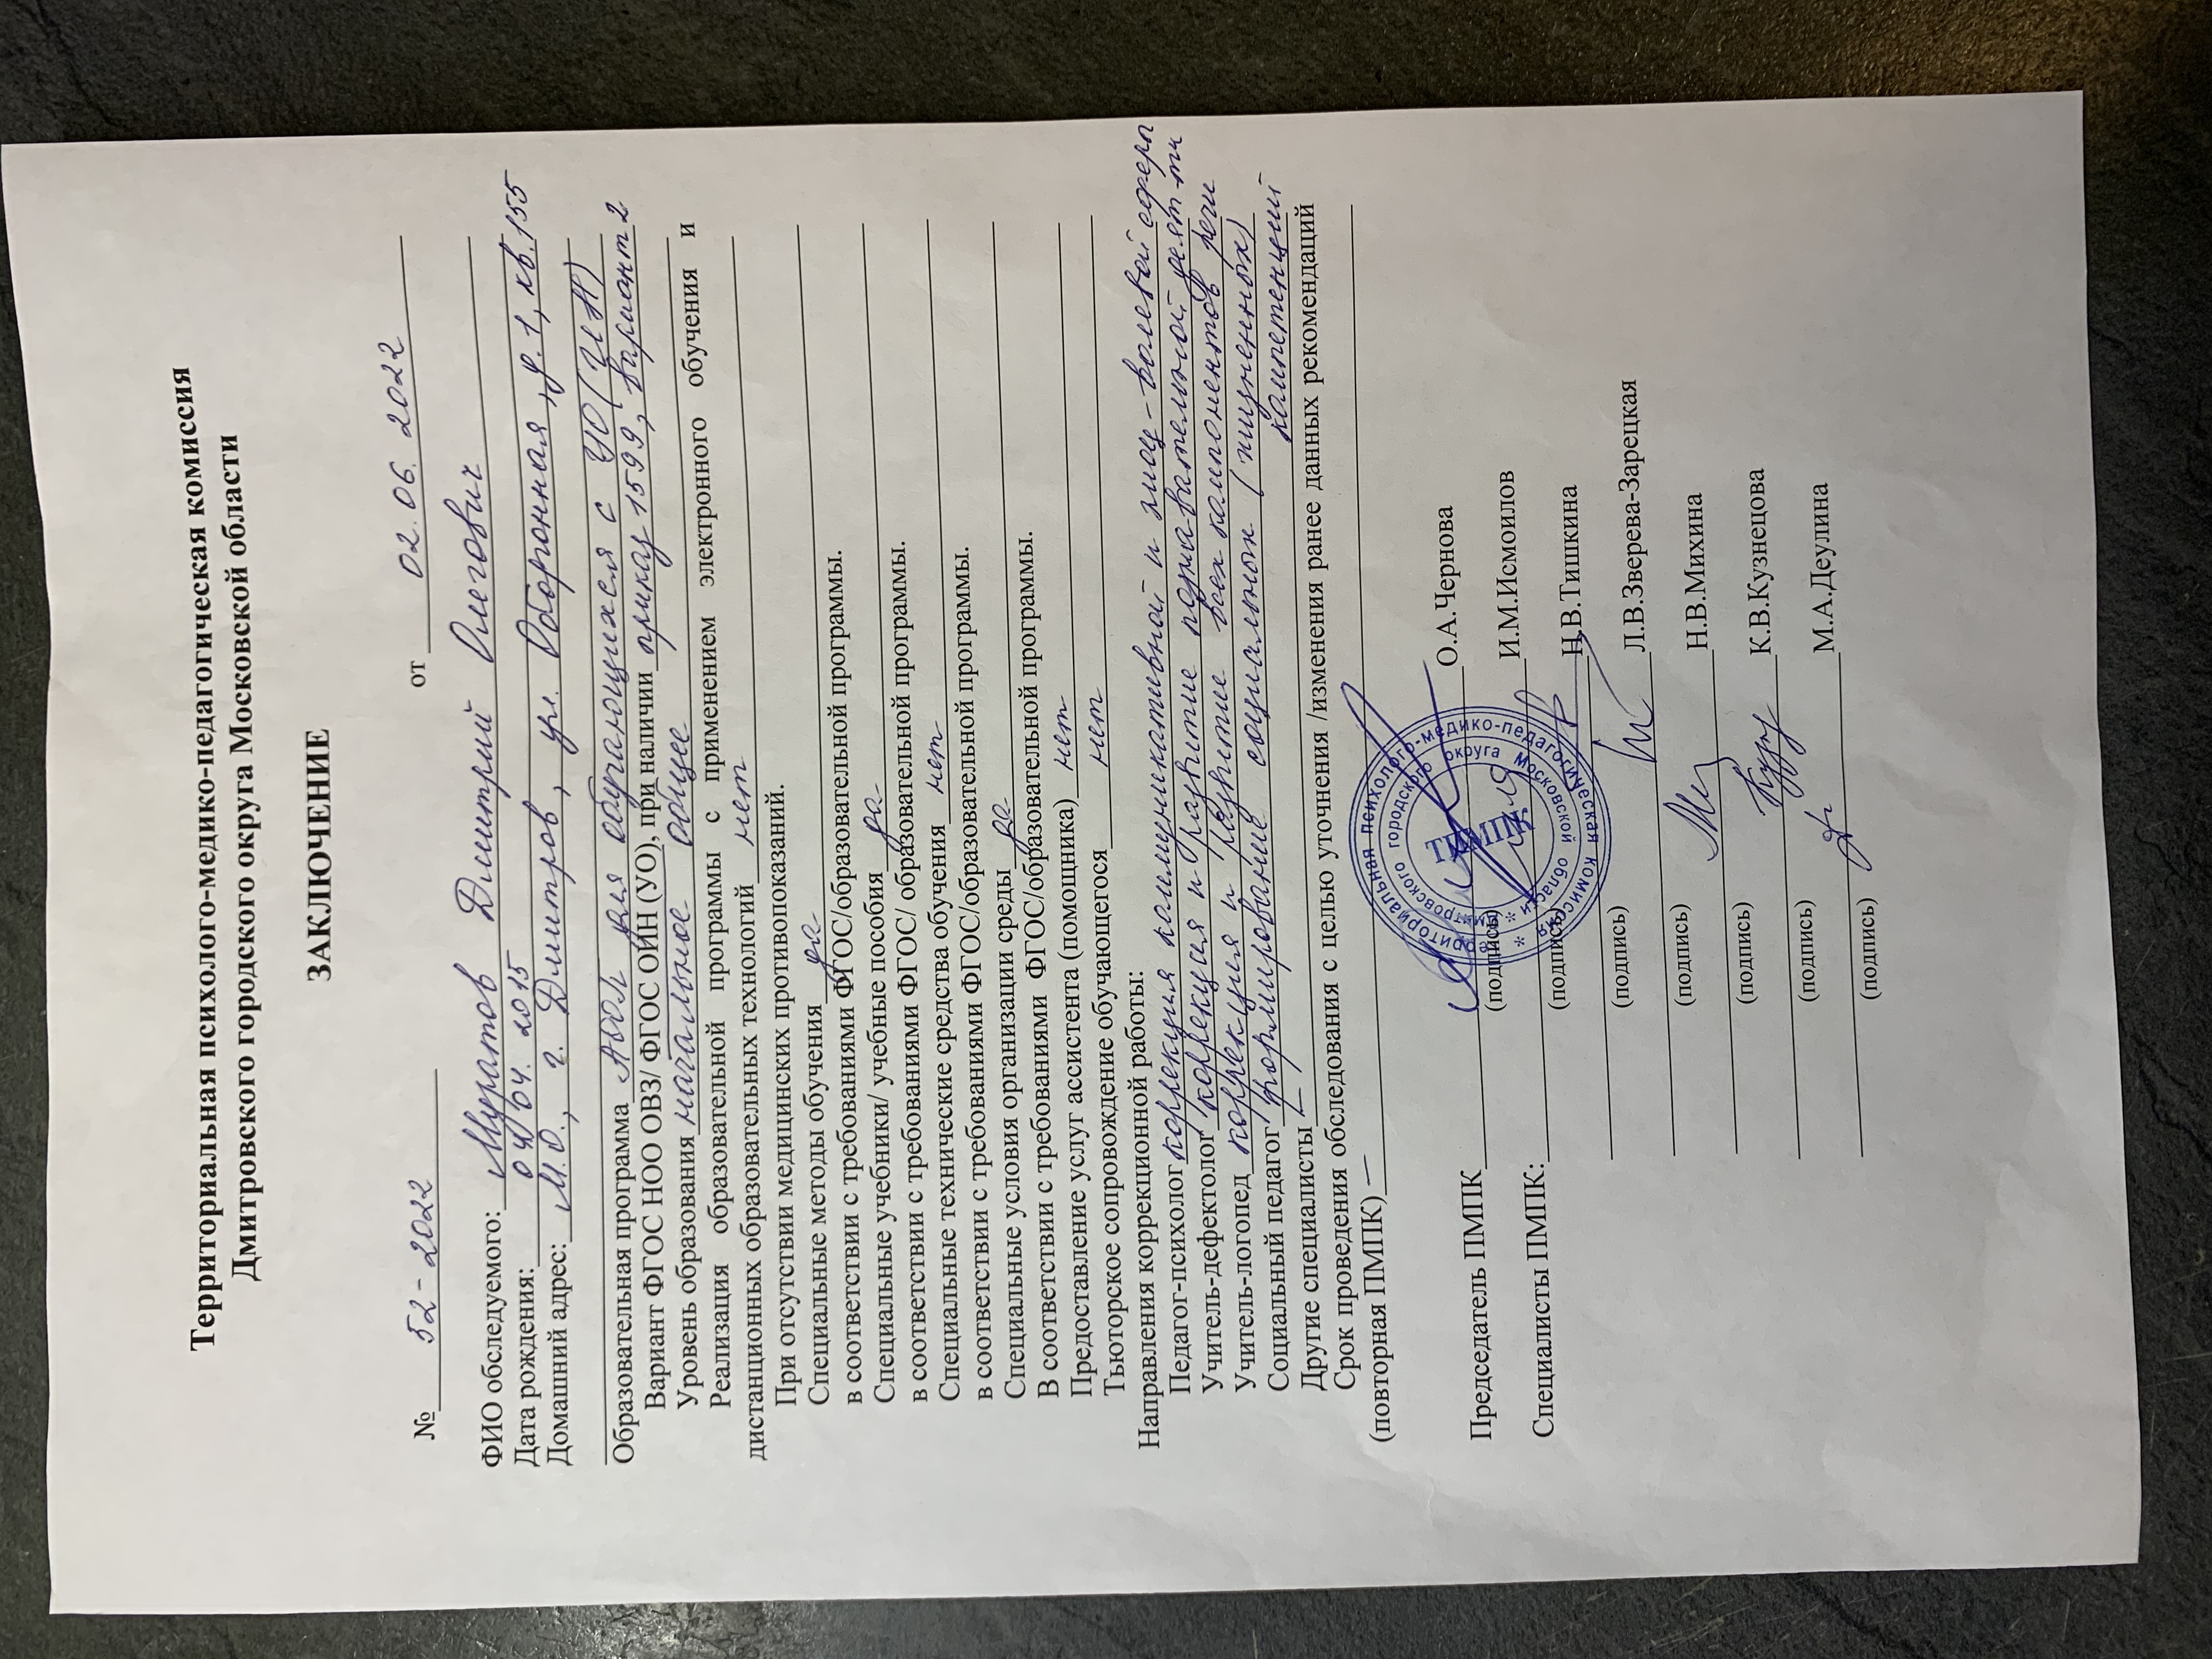 Территориальная психолого-медико-педагогическая комиссия
Дмитровского городского округа Московской области
ЗАКЛЮЧЕНИЕ
№ 52-2022 от 02.06.2022
ФИО обследуемого: Муратов Дмитрий Олегович
Дата рождения: 04.04.2015
Домашний адрес: М.О., г. Дмитров, ул. Оборонная, д. 1, кв. 155
Образовательная программа АООП для обучающихся с УО (ИН)
Вариант ФГОС НОО ОВЗ/ ФГОС ОИН (УО), при наличии приказ 1599, вариант 2
Уровень образования начальное общее
Реализация образовательной программы с применением электронного обучения и
дистанционных образовательных технологий нет
При отсутствии медицинских противопоказаний.
Специальные методы обучения да
в соответствии с требованиями ФГОС/образовательной программы.
Специальные учебники/ учебные пособия да
в соответствии с требованиями ФГОС/ образовательной программы.
Специальные технические средства обучения нет
в соответствии с требованиями ФГОС/образовательной программы.
Специальные условия организации среды да
В соответствии с требованиями ФГОС/образовательной программы.
Предоставление услуг ассистента (помощника) нет
Тьюторское сопровождение обучающегося нет
Направления коррекционной работы:
Педагог-психолог коррекция коммуникативной и эмоц-волевой сферы
Учитель-дефектолог коррекция и развитие познавательной деят-ти
Учитель-логопед коррекция и развитие всех компонентов речи
Социальный педагог формирование социальных (жизненных)
компетенций
Другие специалисты –
Срок проведения обследования с целью уточнения /изменения ранее данных рекомендаций
(повторная ПМПК) –
Председатель ПМПК О.А.Чернова
(подпись)
Специалисты ПМПК: И.М.Исмоилов
(подпись)
Н.В.Тишкина
(подпись)
Л.В.Зверева-Зарецкая
(подпись)
Н.В.Михина
(подпись)
К.В.Кузнецова
(подпись)
М.А.Деулина
(подпись)
Территориальная психолого-медико-педагогическая комиссия
Дмитровского городского округа Московской области
ТПМПК